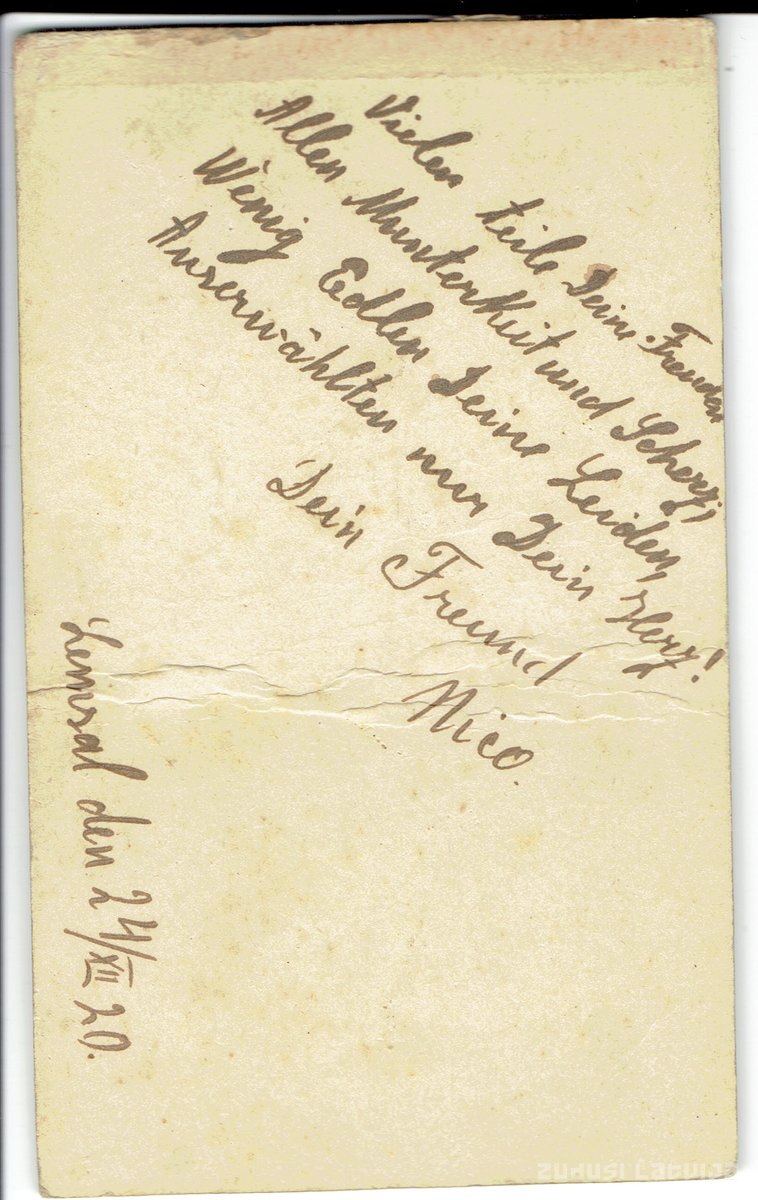 Vielen teile Deine Freuden
Allen Munterkeit und Scherz,
Wenig Edlen Deine Leiden,
Auserwählten nur Dein Herz!
Dein Freund
Nico.
Lemsal den 24/XII 20.
ZUDUSI LATVIJA